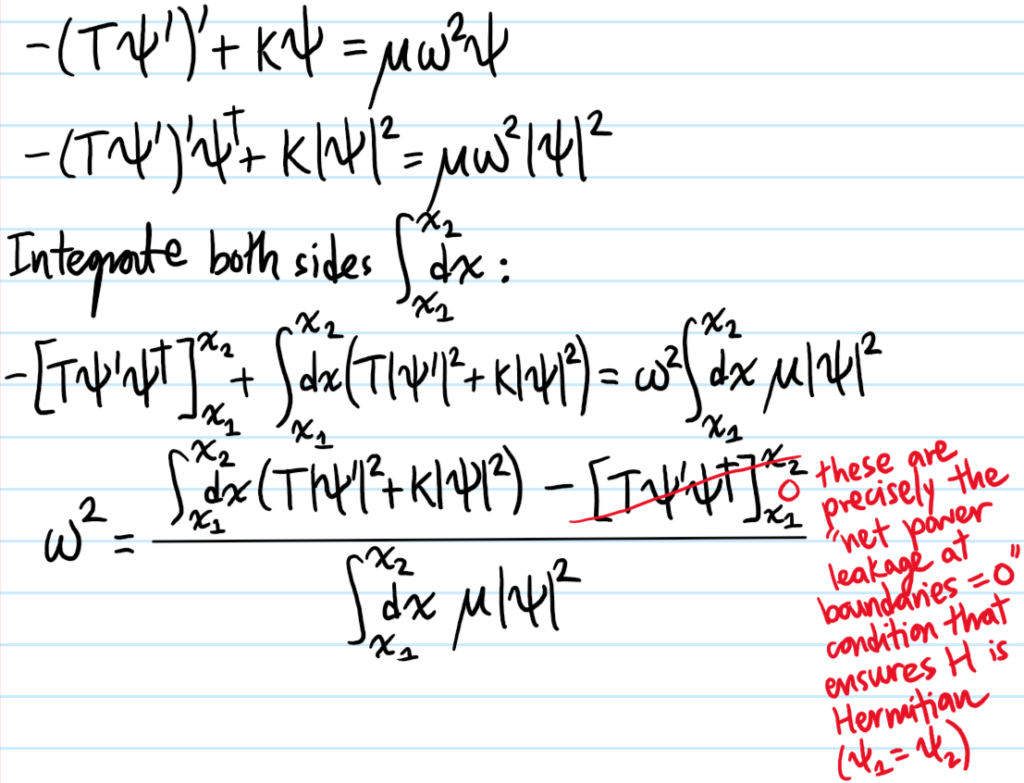 -(Tψ')' + Kψ = μω²ψ
-(Tψ')'ψ† + K|ψ|² = μω²|ψ|²
Integrate both sides ∫_{x₁}^{x₂} dx :
-[Tψ'ψ†]_{x₁}^{x₂} + ∫_{x₁}^{x₂} dx (T|ψ'|² + K|ψ|²) = ω² ∫_{x₁}^{x₂} dx μ|ψ|²
ω² = (∫_{x₁}^{x₂} dx (T|ψ'|² + K|ψ|²) - [Tψ'ψ†]_{x₁}^{x₂} 0) / (∫_{x₁}^{x₂} dx μ|ψ|²)
these are
precisely the
"net power
leakage at
boundaries = 0"
condition that
ensures H is
Hermitian
(ψ₁ = ψ₂)